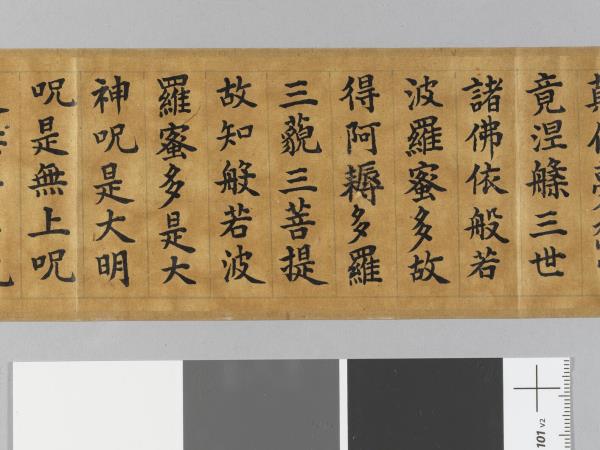 竟涅槃三世
諸佛依般若
波羅蜜多故
得阿耨多羅
三藐三菩提
故知般若波
羅蜜多是大
神呪是大明
呪是無上呪
101 v2